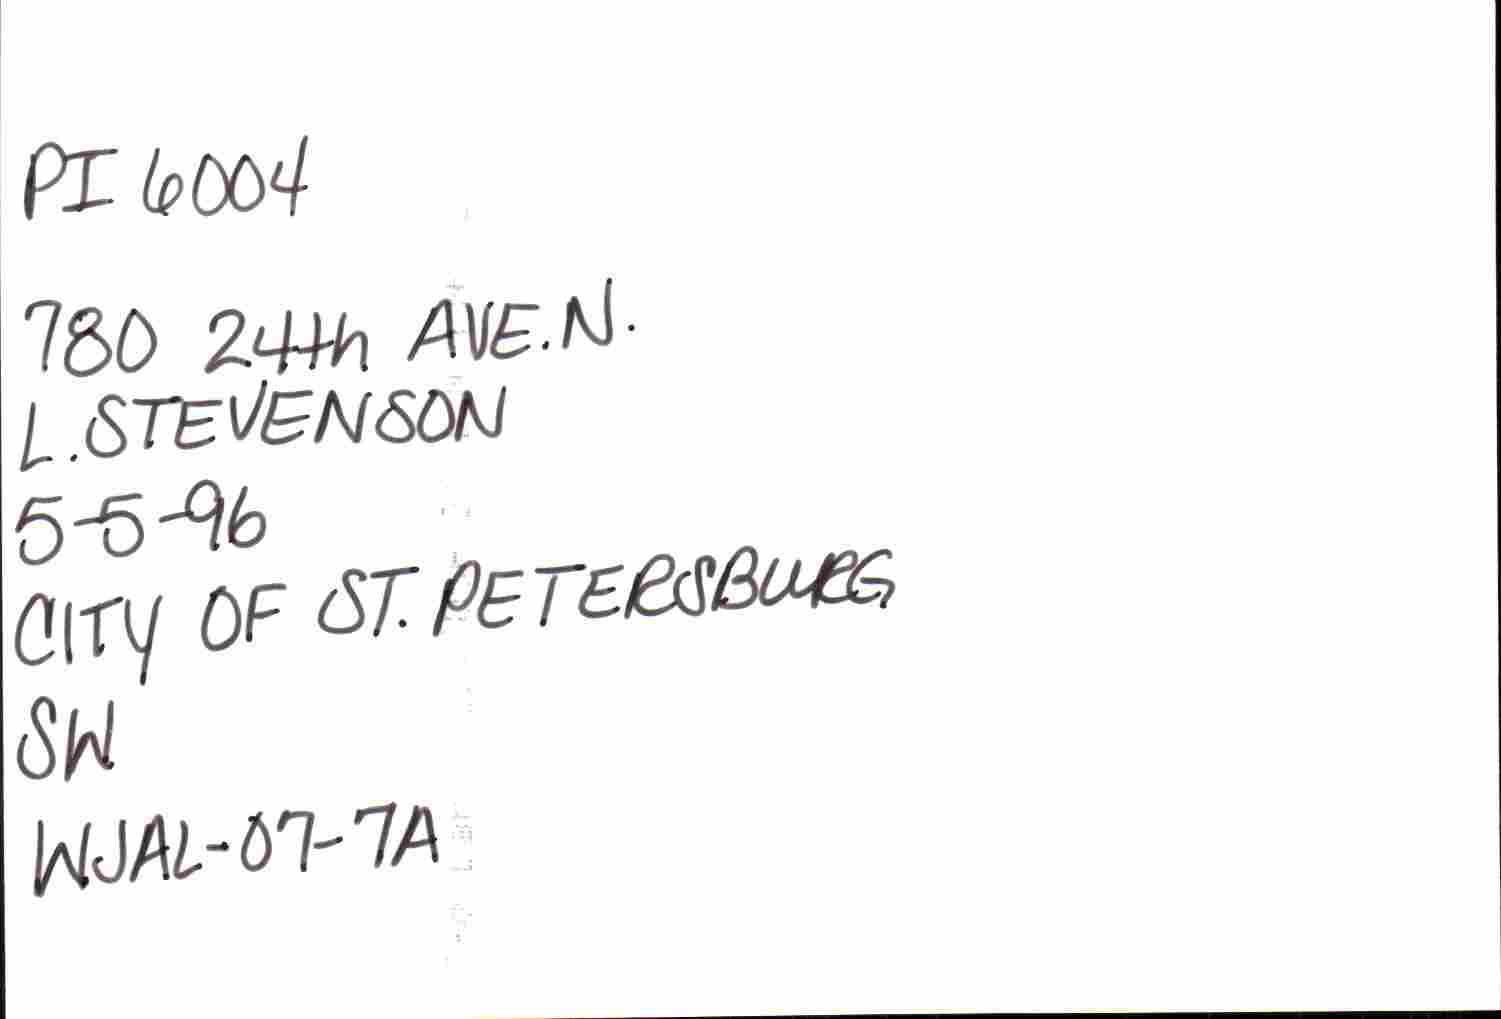 PI 6004
780 24th AVE. N.
L. STEVENSON
5-5-96
CITY OF ST. PETERSBURG
SW
WJAL-07-7A